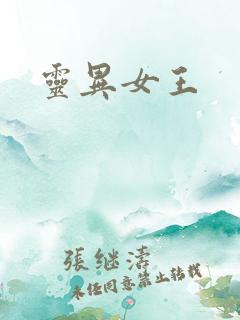 靈異女王
張继濤
未经同意禁止转载